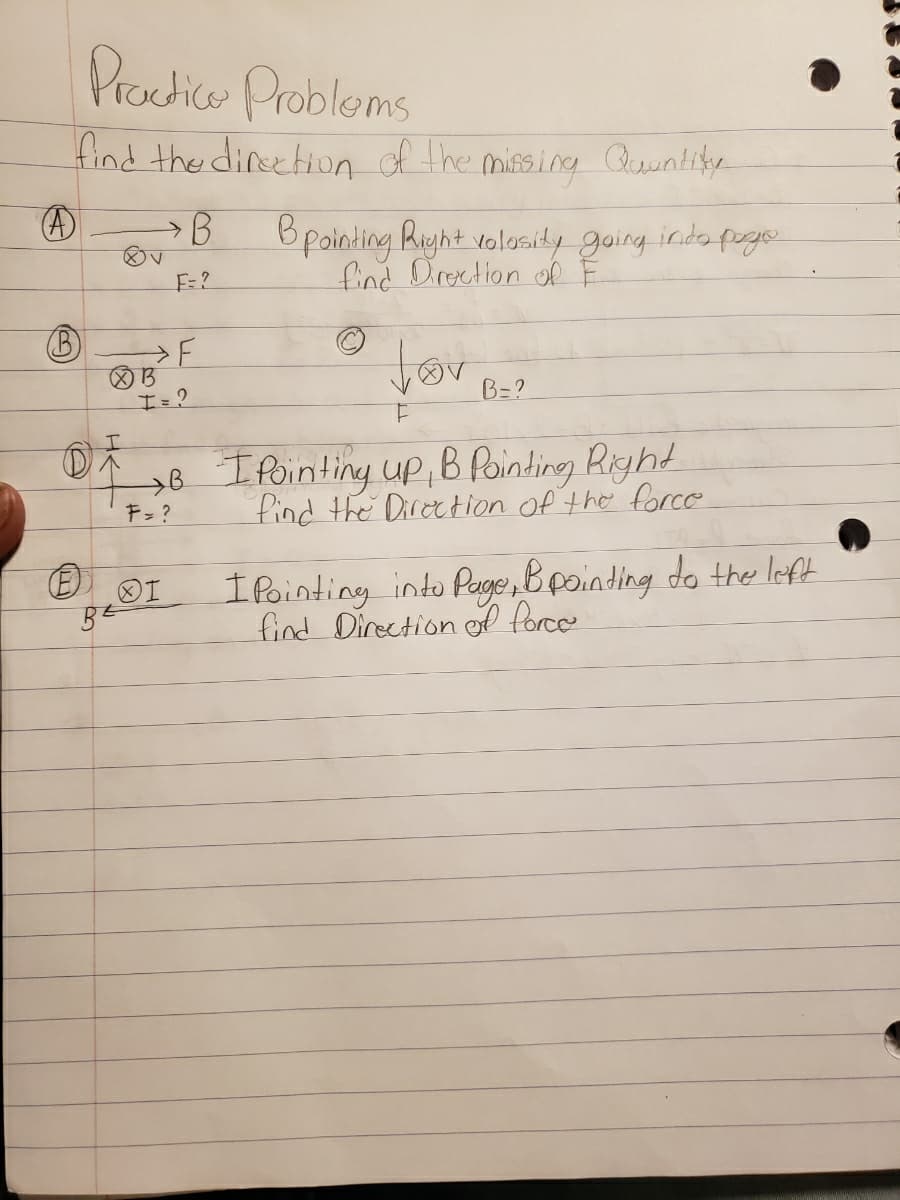 Practice Problems
find the direction of the missing Quantity
Ⓐ → B B pointing Right volosity going into page
ⓧ v
F=? find Direction of F
Ⓑ → F
ⓧ B
I = ?
Ⓒ ↓ ⓧ v
F
B=?
Ⓓ I
↑ → B I Pointing up, B Pointing Right
F= ? find the Direction of the force
Ⓔ ⓧ I I Pointing into Page, B pointing to the left
B ← find Direction of force